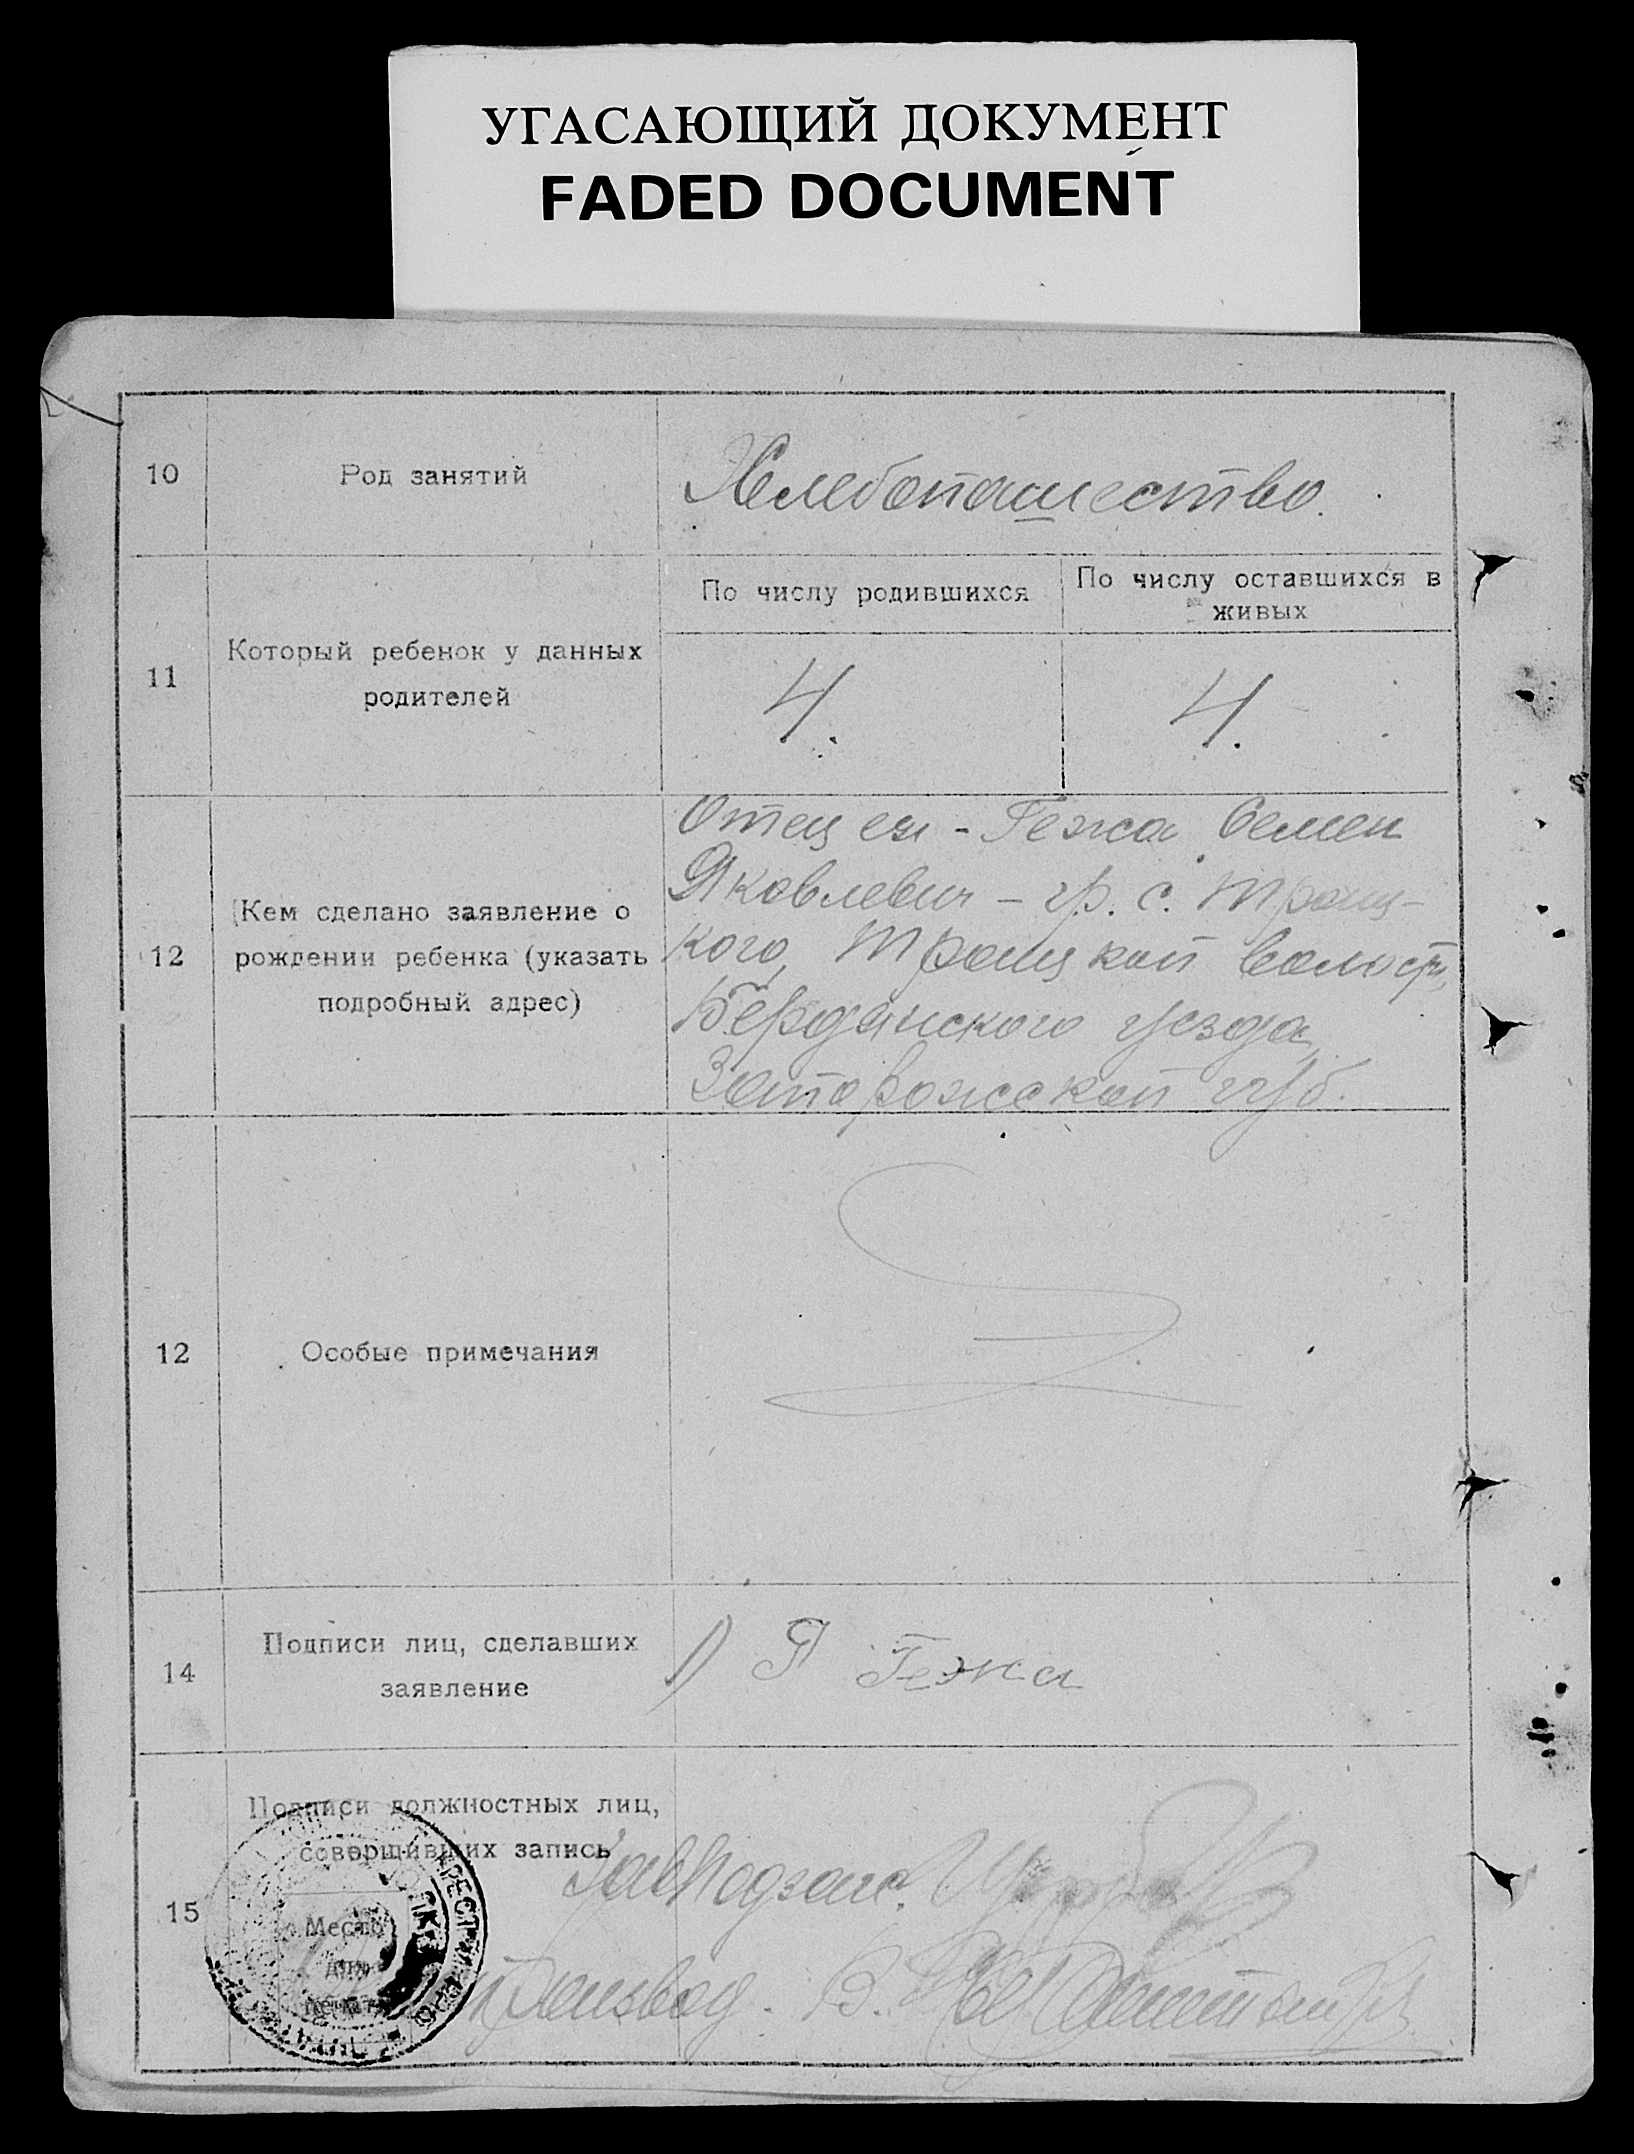 УГАСАЮЩИЙ ДОКУМЕНТ
FADED DOCUMENT
10
Род занятий
Хлебопашество.
11
Который ребенок у данных
родителей
По числу родившихся
По числу оставшихся в
живых
4.
4.
12
Кем сделано заявление о
рождении ребенка (указать
подробный адрес)
Отец ея - Гежа Семен
Яковлевич - гр. с. Троиц-
кого, Троицкой волости,
Бердянского уезда,
Запорожской губ.
12
Особые примечания
14
Подписи лиц, сделавших
заявление
1) Гежа
15
Подписи должностных лиц,
совершивших запись
Место
для
печати
ЗавПодзагс.
Делопроизвод.